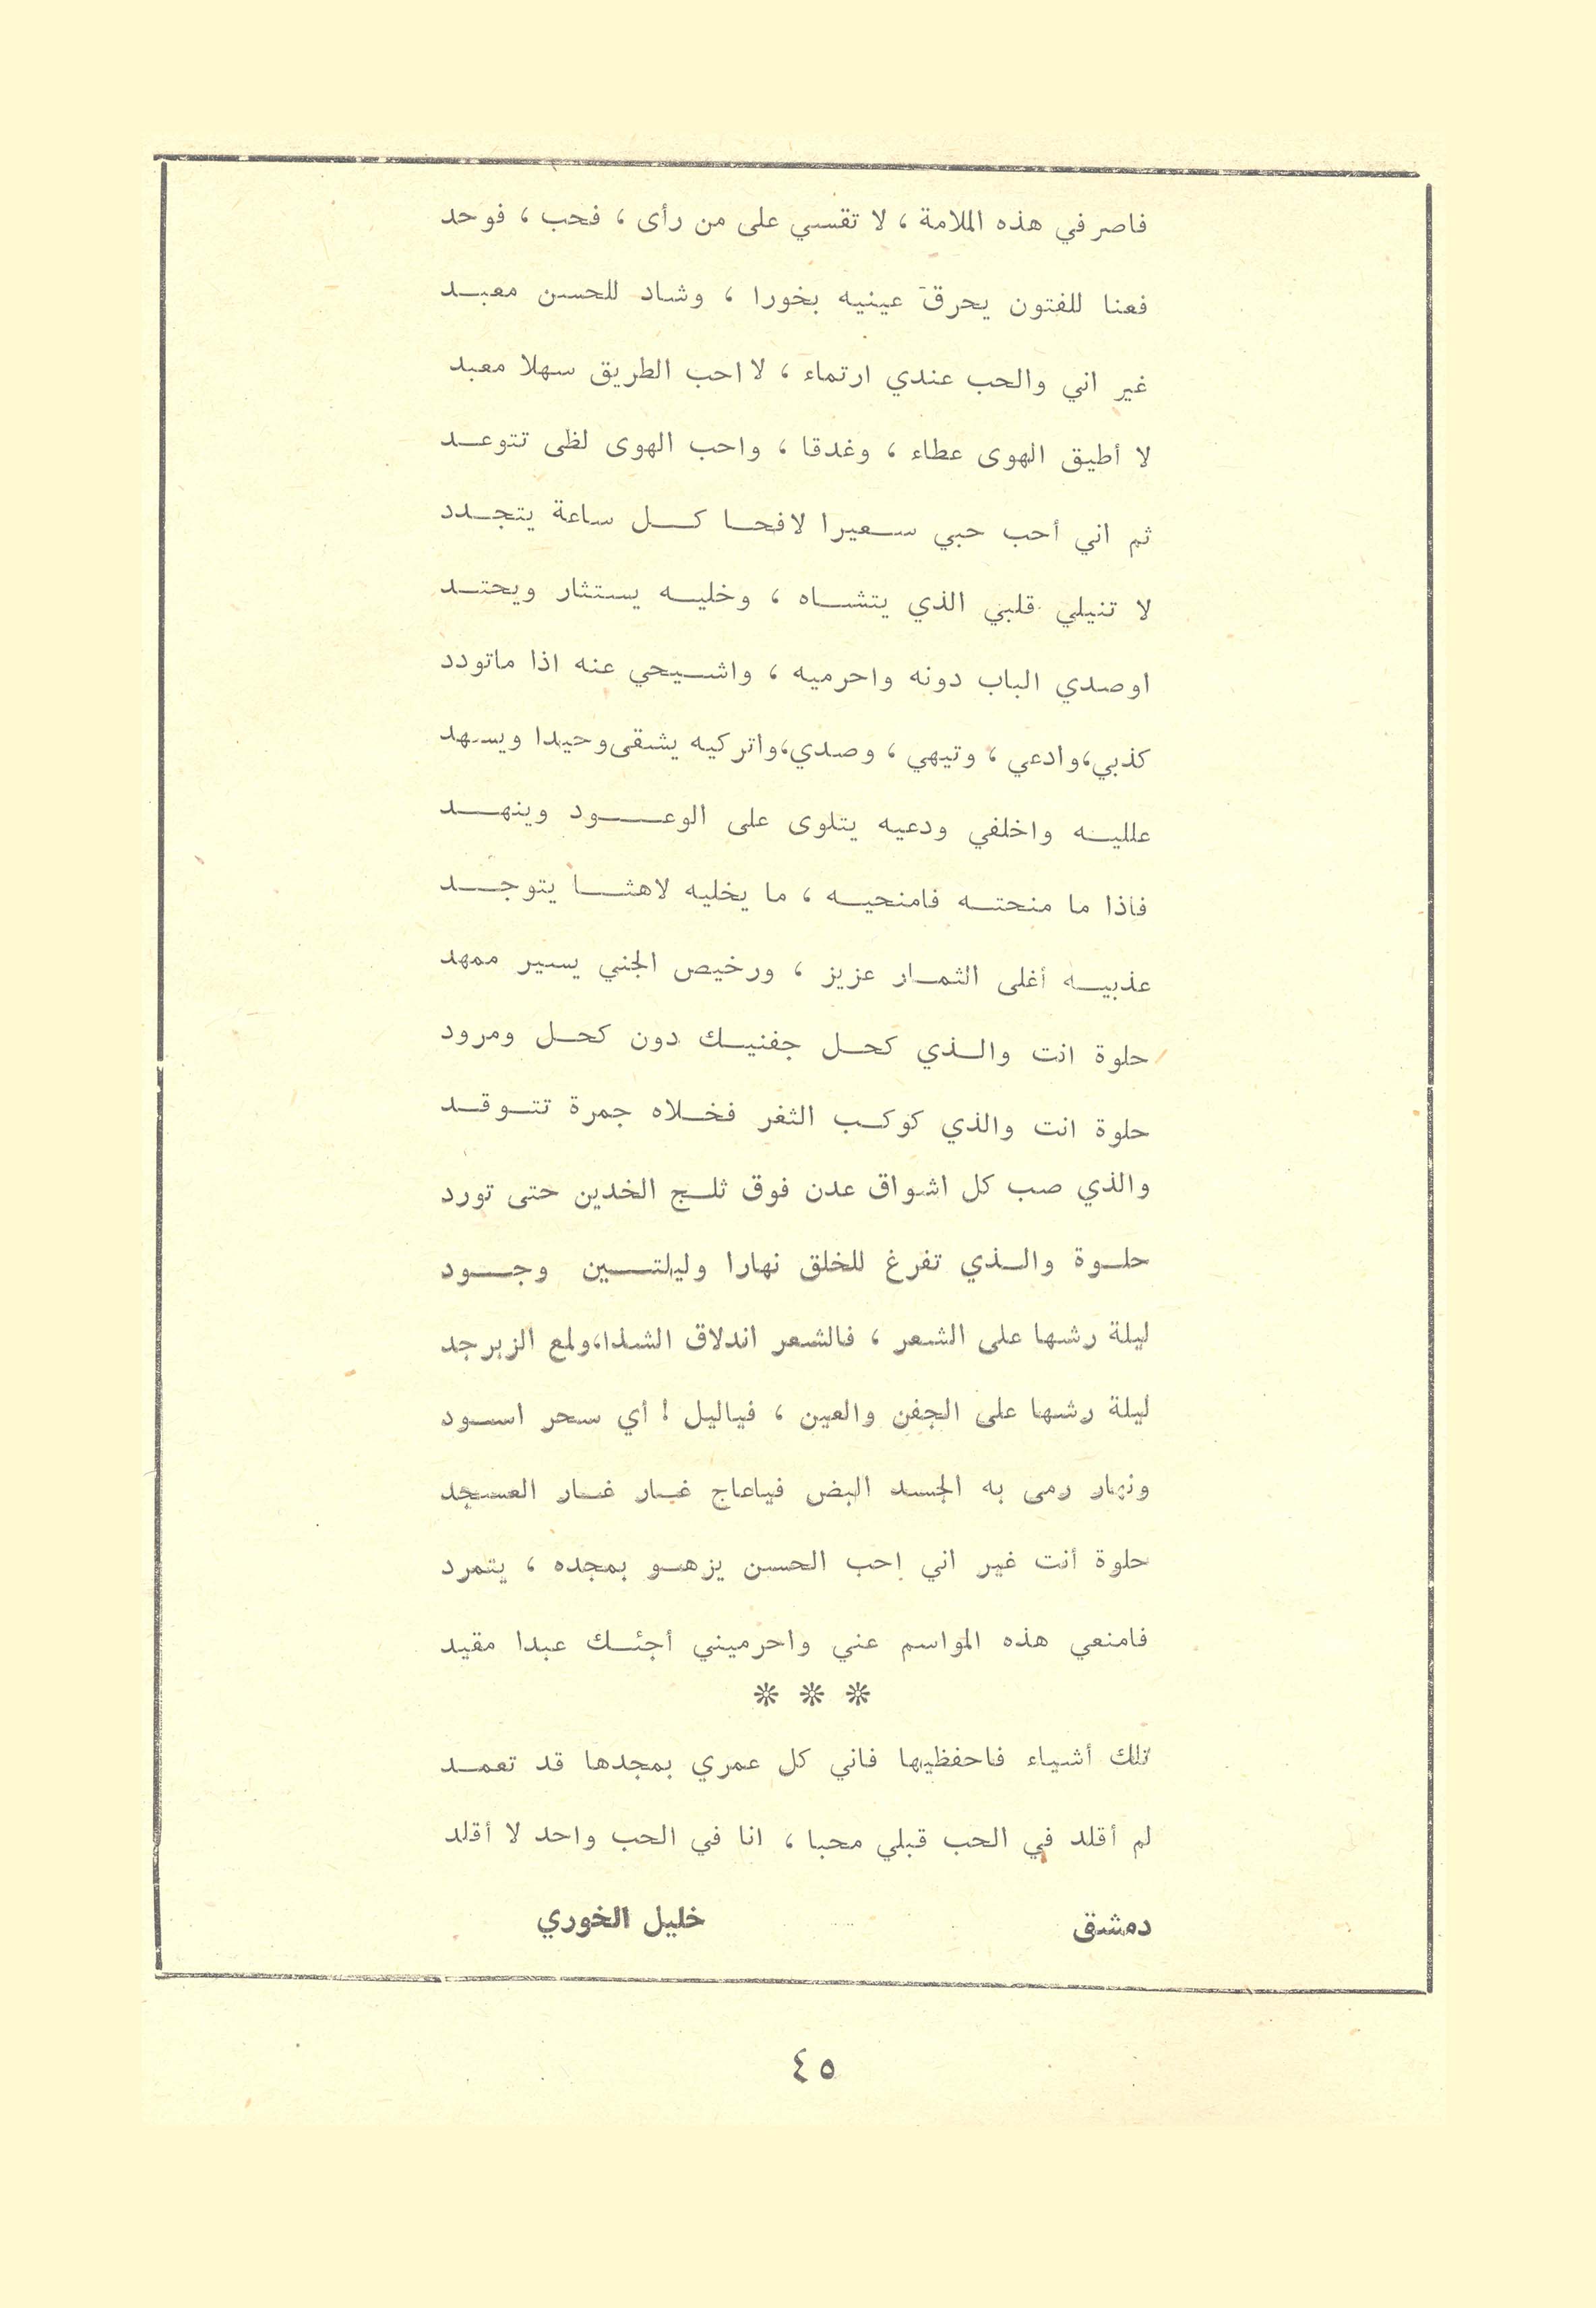 فاصر في هذه الملامة ، لا تقسي على من رأى ، فحب ، فوحد
فعنا للفتون يحرق عينيه بخورا ، وشاد للحسن معبـــد
غير اني والحب عندي ارتماء ، لا احب الطريق سهلا معبد
لا أطيق الهوى عطاء ، وغدقا ، واحب الهوى لظى تتوعـــد
ثم اني أحب حبي ســـعيرا لافحـــا كـــل ساعة يتجـــدد
لا تنيلي قلبي الذي يتشـــاه ، وخليـــه يستثار ويحتـــد
اوصدي الباب دونه واحرميه ، واشـــيحي عنه اذا ماتودد
كذبي،وادعي ، وتيهي ، وصدي،واتركيه يشقى وحيدا ويسهد
علليـــه واخلفي ودعيه يتلوى على الوعـــود وينهـــد
فاذا ما منحتـــه فامنحيـــه ، ما يخليه لاهثـــا يتوجـــد
عذبيـــه أغلى الثمـــار عزيز ، ورخيص الجني يسير ممهد
حلوة انت والـــذي كحـــل جفنيـــك دون كحـــل ومرود
حلوة انت والذي كوكـــب الثغر فخـــلاه جمرة تتـــوقـــد
والذي صب كل اشواق عدن فوق ثلـــج الخدين حتى تورد
حلـــوة والـــذي تفرغ للخلق نهارا وليلتـــين وجـــود
ليلة رشها على الشعر ، فالشعر اندلاق الشذا،ولمع الزبرجد
ليلة رشها على الجفن والعين ، فياليل ! أي سحر اســـود
ونهار رمى به الجسد البض فياعاج غـــار غـــار العسجد
حلوة أنت غير اني احب الحسن يزهـــو بمجده ، يتمرد
فامنعي هذه المواسم عني واحرميني أجئـــك عبدا مقيد
* * *
تلك أشياء فاحفظيها فاني كل عمري بمجدها قد تعمـــد
لم أقلد في الحب قبلي محبا ، انا في الحب واحد لا أقلد
دمشق خليل الخوري
٤٥